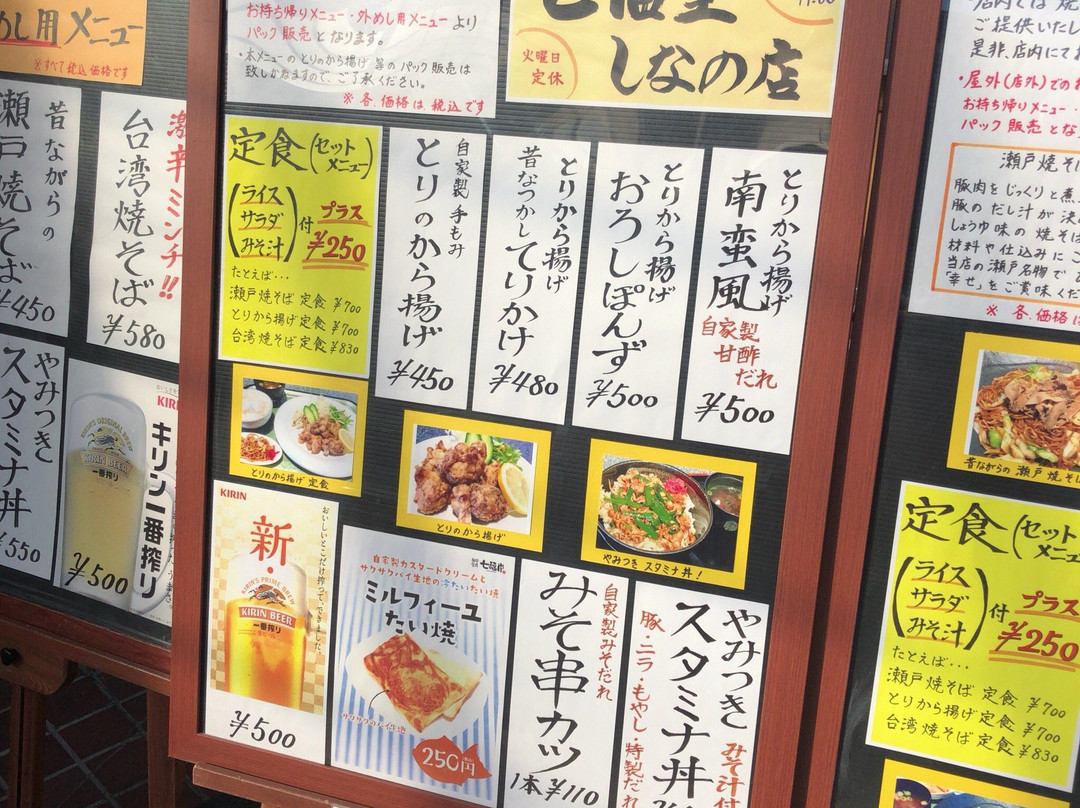 めし用メニュー
※すべて税込価格です
昔ながらの
瀬戸焼そば
¥450
激辛ミンチ!!
台湾焼そば
¥580
やみつき
スタミナ丼
¥550
KIRIN BEER
一番搾り
キリン一番搾り
¥500
お持ち帰りメニュー・外めし用メニューより
パック販売となります。
・本メニューのとりのから揚げ等のパック販売は
致しかねますので、ご了承ください。
※各、価格は税込です
火曜日
定休
しなの店
定食(セットメニュー)
(ライス
サラダ
みそ汁)
付
プラス
¥250
たとえば…
瀬戸焼そば定食 ¥700
とりから揚げ定食 ¥700
台湾焼そば定食 ¥830
自家製手もみ
とりのから揚げ
¥450
とりから揚げ
昔なつかしてりかけ
¥480
とりから揚げ
おろしぽんず
¥500
とりから揚げ
南蛮風
自家製
甘酢
だれ
¥500
とりのから揚げ定食
とりのから揚げ
やみつきスタミナ丼!
KIRIN
おいしいとこだけ搾って、できました。
新・
KIRIN'S PRIME BREW
KIRIN BEER
一番搾り
¥500
自家製カスタードクリームと
サクサクパイ生地の冷たいたい焼
ミルフィーユ
たい焼
サクサクのパイ生地
250円
自家製みそだれ
みそ串カツ
1本¥110
やみつき
スタミナ丼
豚・ニラ・もやし・特製だれ
みそ汁付
ご提供いたし
是非、店内にてお
・屋外(店外)での
お持ち帰りメニュー・
パック販売とな
瀬戸焼そ
豚肉をじっくりと煮
豚のだし汁が決
しょうゆ味の焼そば
材料や仕込みにこ
当店の瀬戸名物で
「幸せ」をご賞味くだ
※各、価格は
昔ながらの瀬戸焼そ
定食(セットメニュー)
(ライス
サラダ
みそ汁)
付
プラス
¥250
たとえば…
瀬戸焼そば定食 ¥700
とりから揚げ定食 ¥700
台湾焼そば定食 ¥830